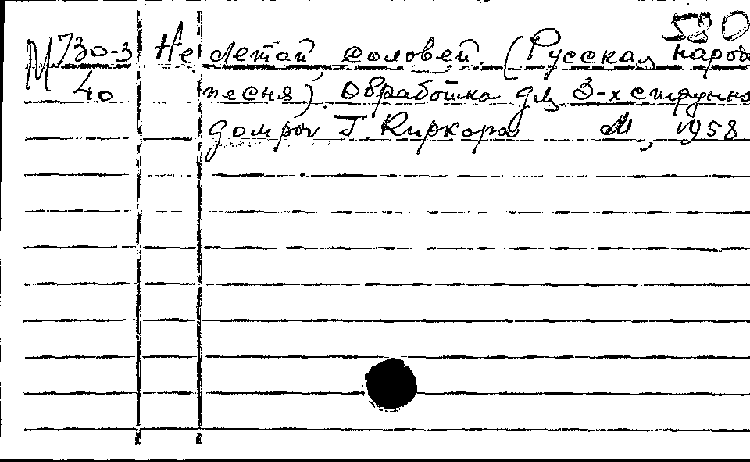 530
М 730-3 Не летай соловей. (Русская народ
40 песня). Обработка для 3-х струнно
домры Г. Киркора М, 1958